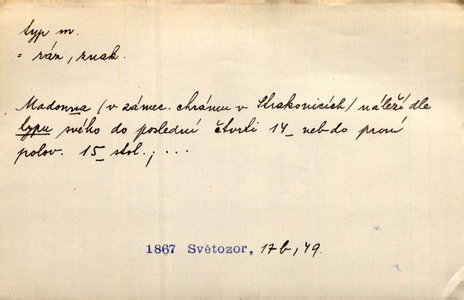 typ m.
= ráz, znak.
Madonna (v zámec. chrámu v Strakonicích) náleží dle
typu svého do poslední čtvrti 14_ neb do první
polov. 15_ stol.; ...
1867 Světozor, 17b, 49.